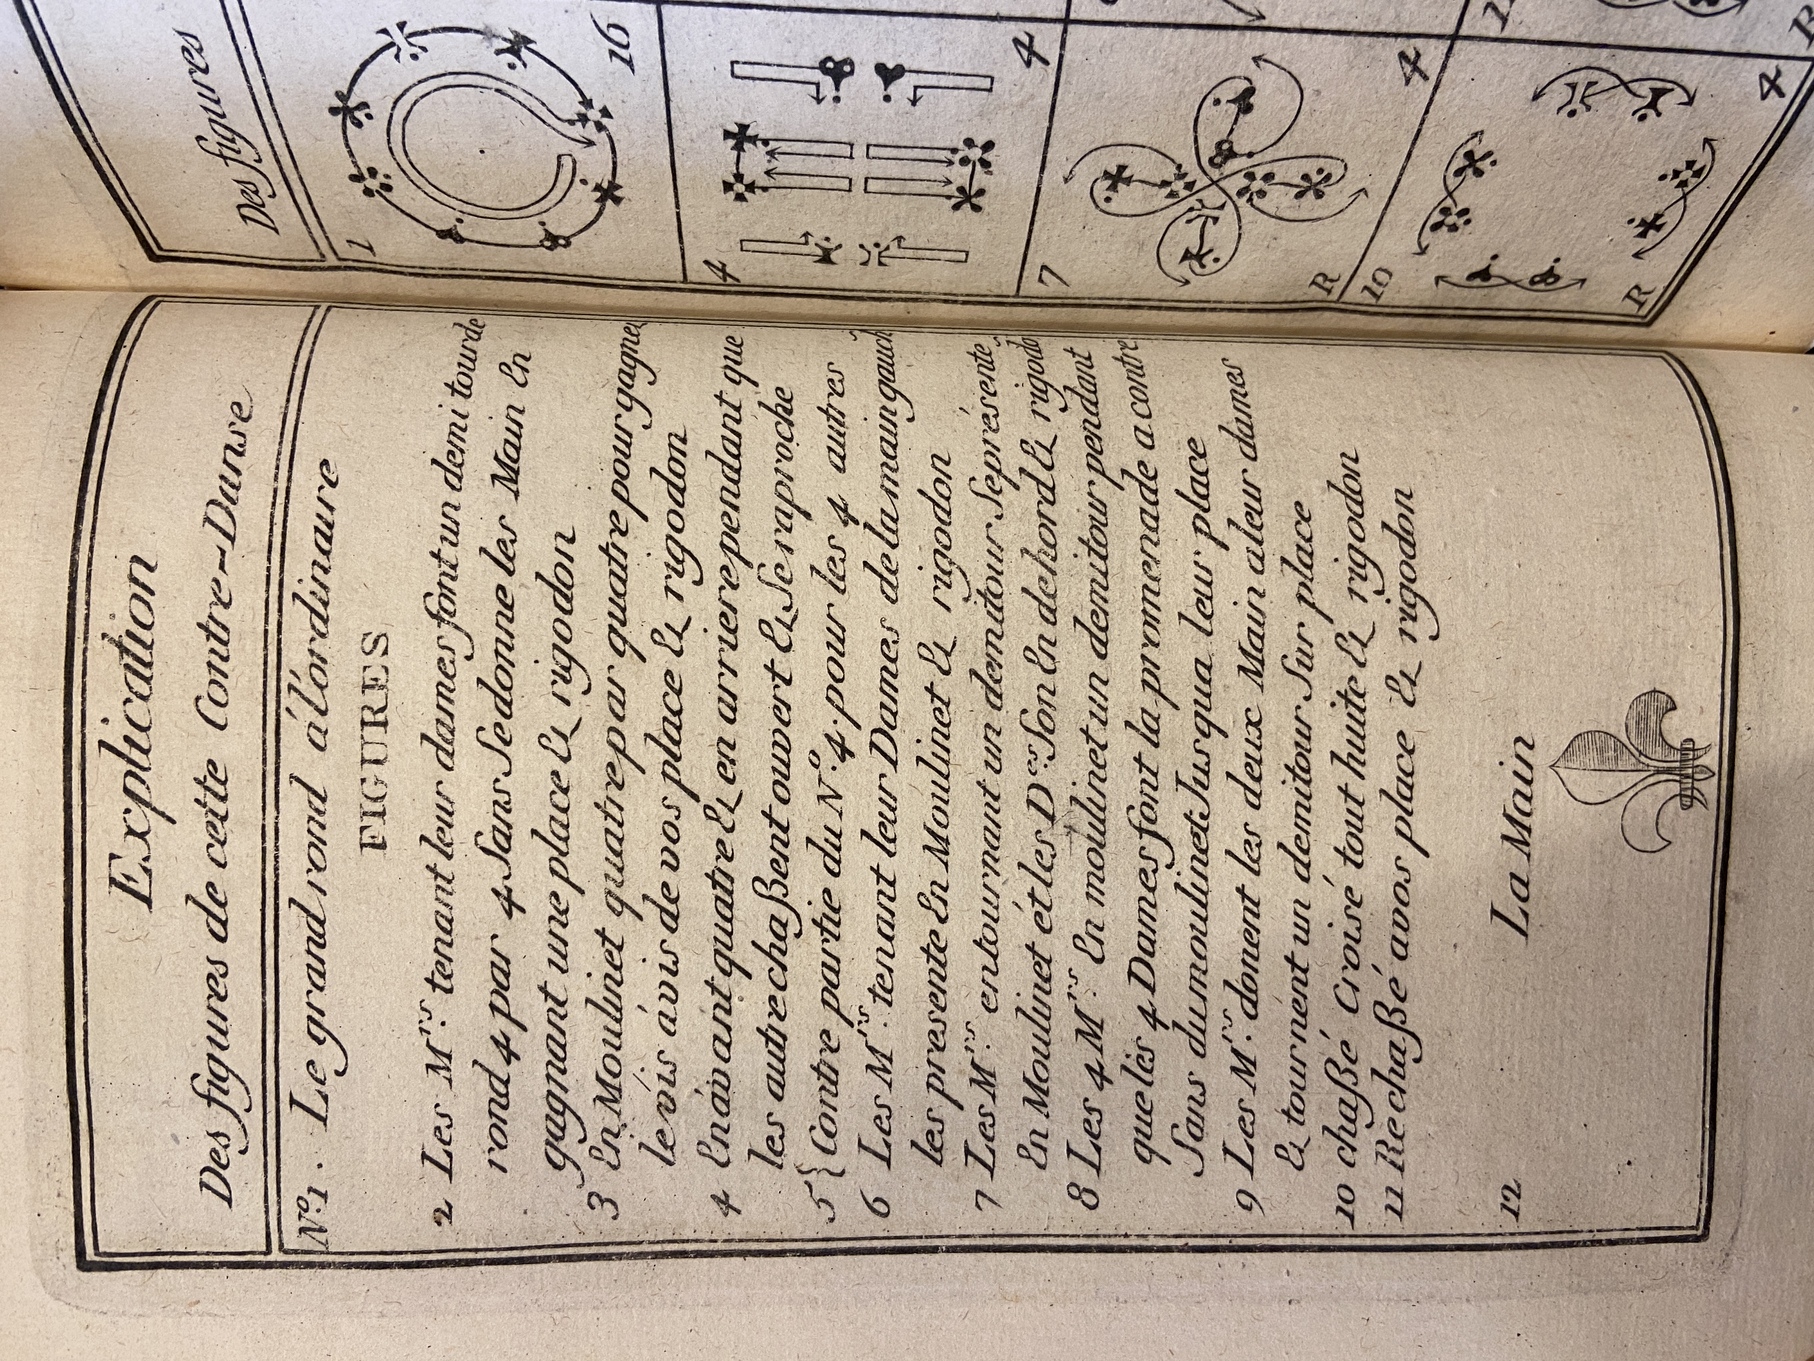 Explication
Des figures de cette Contre-Danse
N.º 1. Le grand rond à l'ordinaire
FIGURES
2 Les M.rs tenant leur dames font un demi tour de
rond 4 par 4 Sans Se donne les Main En
gagnant une place & rigodon
3 En Moulinet quatre par quatre pour gagner
le vis á vis de vos place & rigodon
4 En avant quatre & en arriere pendant que
les autre chaßent ouvert & Se raproche
5 { Contre partie du N.º 4. pour les 4 autres
6 Les M.rs tenant leur Dames de la main gauch
les presente En Moulinet & rigodon
7 Les M.rs en tournant un demi tour Se présente
En Moulinet ét les D.es Son En dehord & rigodo
8 Les 4 M.rs En moulinet un demi tour pendant
que lés 4 Dames font la promenade a contre
Sans du moulinet Jusqua leur place
9 Les M.rs donent les deux Main a leur dames
& tournént un demi tour Sur place
10 chaßé Croisé tout huite & rigodon
11 Re chaßé a vos place & rigodon
12 La Main
Des figures
1
16
4
4
7
R
4
10
R
4